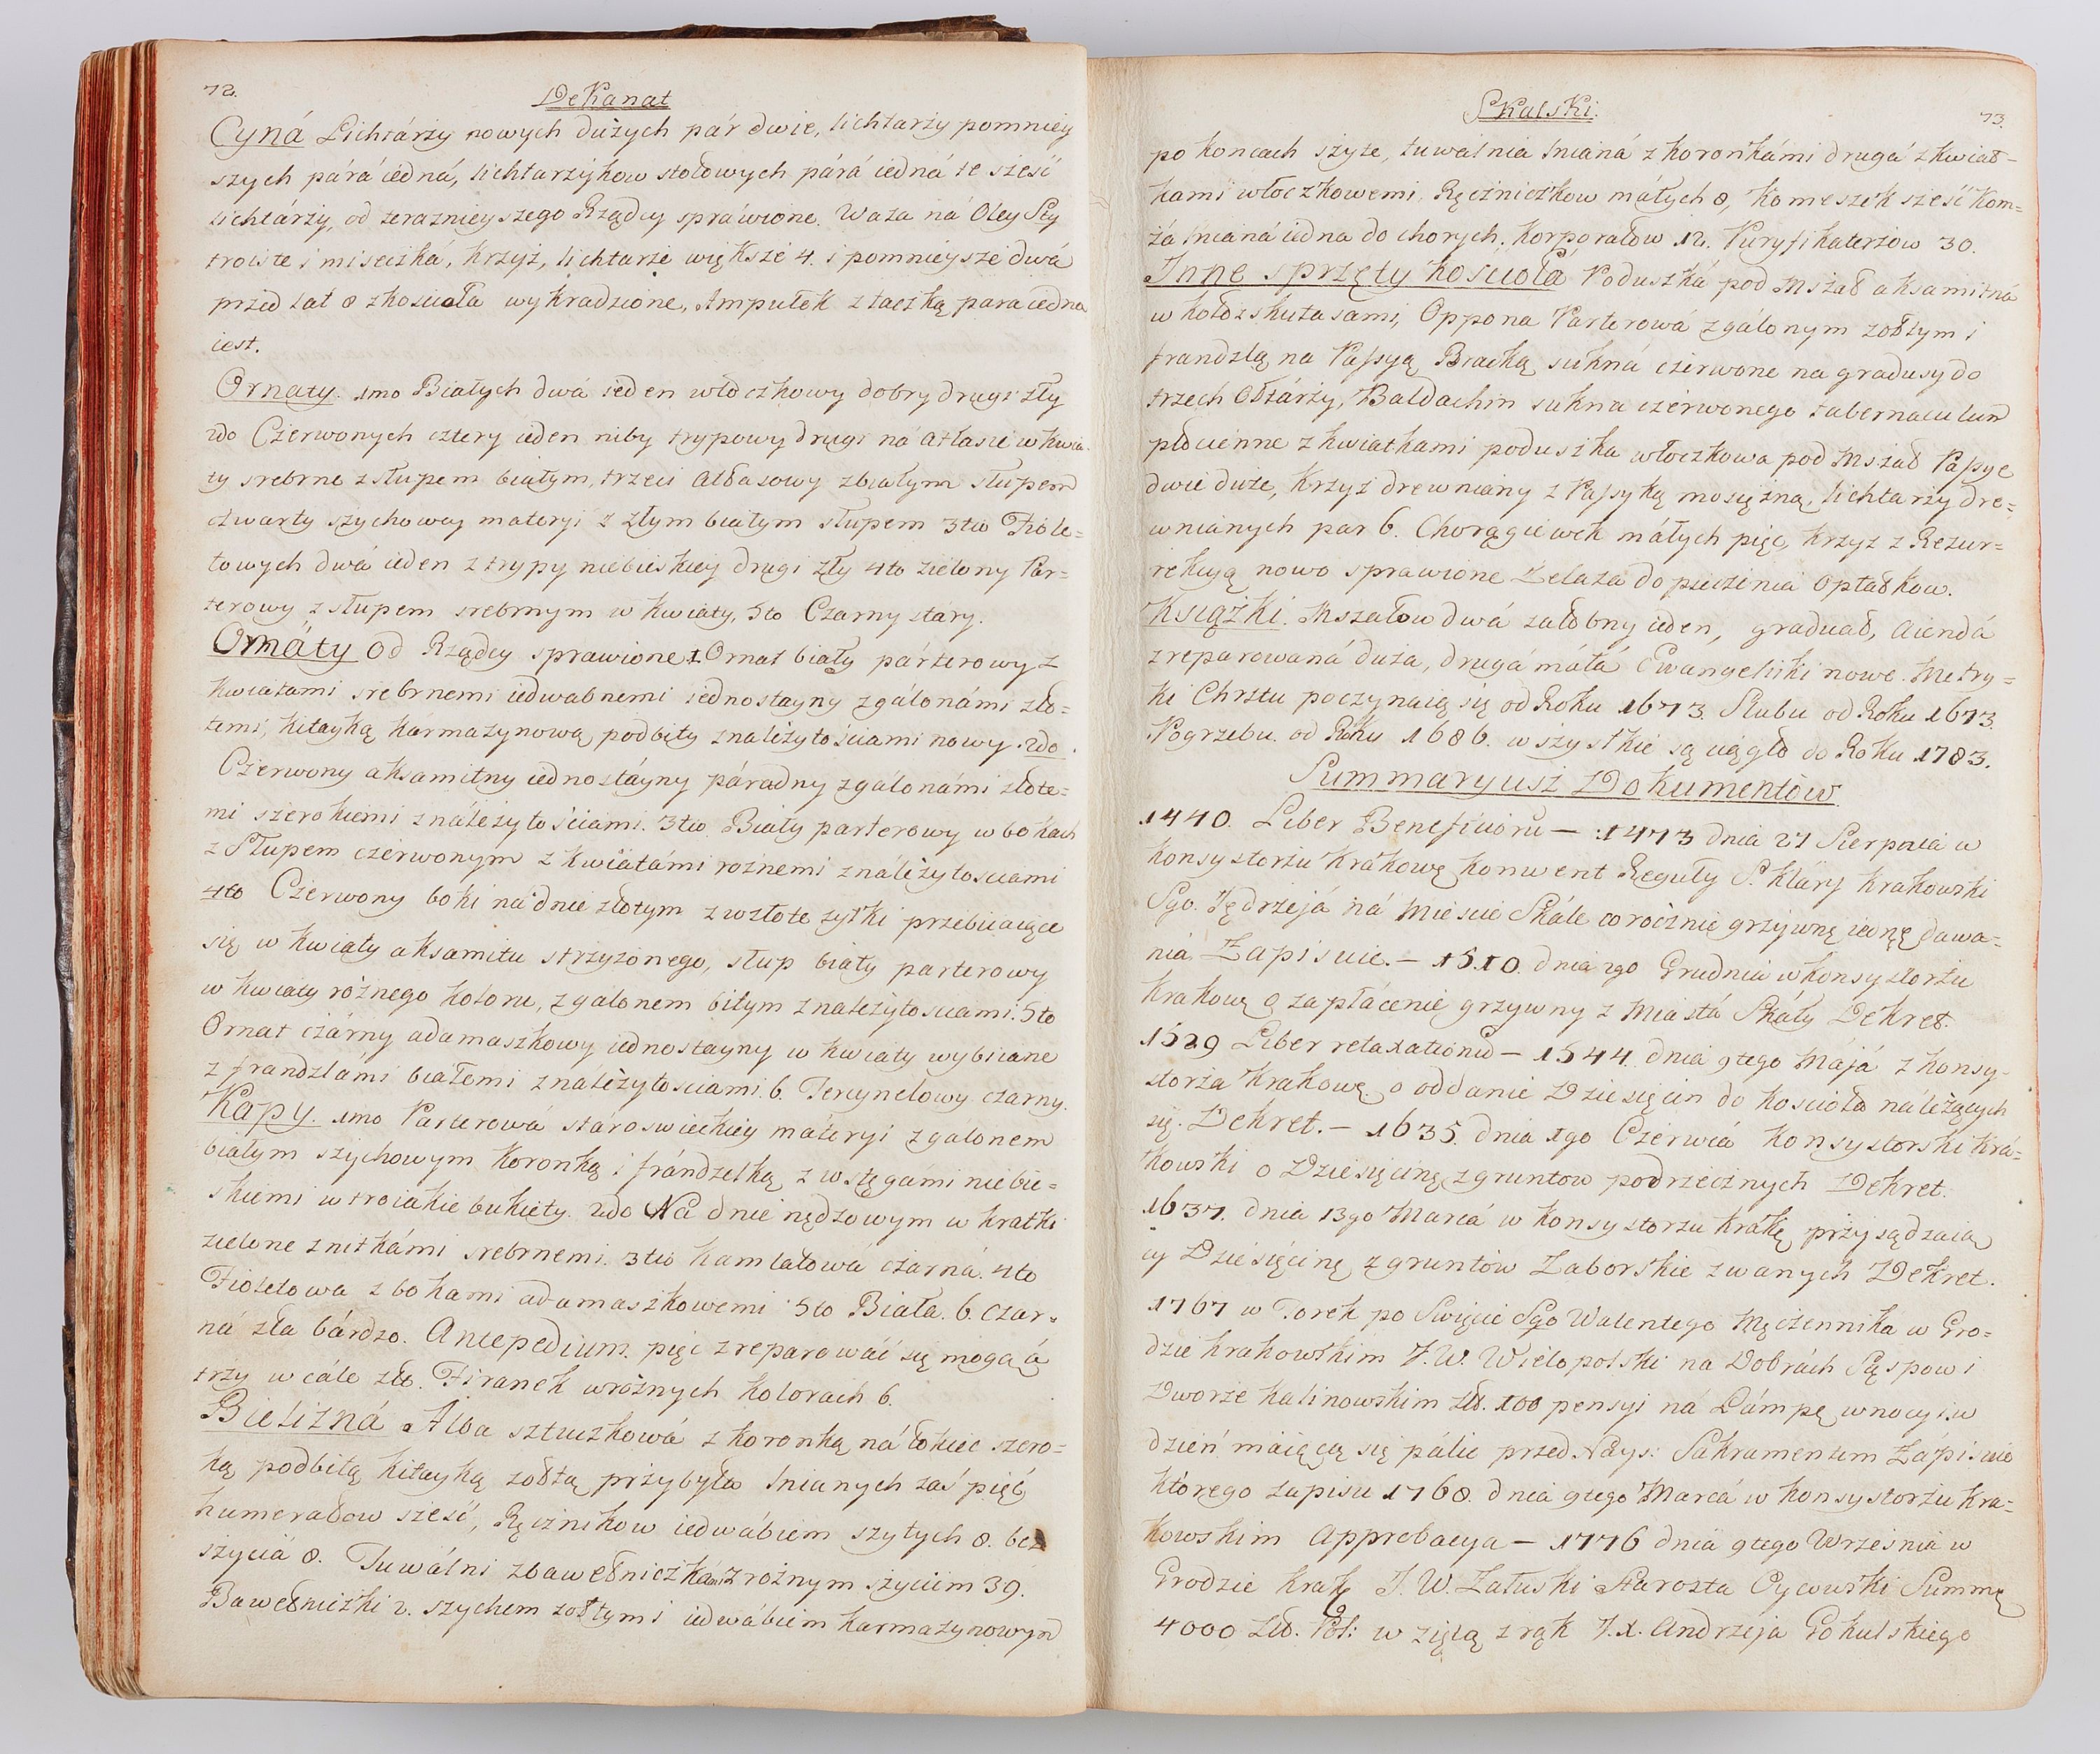 72.
DeKanat
Cyná Lichtárży nowych dużych pár dwie, lichtarży pomniey
szych párá iedná, lichtarzykow stołowych párá iedná te sześć
lichtárży, od teraznieyszego Rządcy spráwione. Waza ná Oley Sty
troiste i miseczká, krzyż, lichtarze większe 4. i pomnieysze dwá
przed lat 8 zkoscioła wykradzione, Ampułek z taczką para iedna
iest.
Ornaty. 1mo Białych dwá ieden włoczkowy dobry drugi zły
2do Czerwonych cztery ieden niby trypowy drugi ná atłasie w kwia
ty srebrne z słupem białym, trzeci atłasowy z białym słupem
czwarty szychowey materyi z złym białym słupem 3tio Fiole=
towych dwá ieden z trypy niebieskiey drugi zły 4to zielony Par=
terowy z słupem srebrnym w kwiaty, 5to Czarny stáry.
Ornáty od Rządcy sprawione 1 Ornat biały párterowy z
kwiatami srebrnemi iedwabnemi iednostayny z gálonámi zło=
temi, kitayką kármazynową podbity z należytościami nowy 2do.
Czerwony aksamitny iednostáyny páradny z gálonámi złote=
mi szerokiemi z náleżytościami. 3tio Biały parterowy w bokach
z Słupem czerwonym z kwiatámi rożnemi z náleżytosciami
4to Czerwony boki ná dnie złotym z w złote sytki przebiiaiące
się w kwiaty aksamitu strzyżonego, słup biały parterowy
w kwiaty różnego koloru, z galonem biłym z należytosciami. 5to
Ornat czárny adamaszkowy iednostayny w kwiaty wybiiane
z frandzlámi białemi z náleżytościami. 6. Tercynelowy czarny.
Kapy. 1mo Parterowá stároswieckiey máteryi z galonem
białym szychowym Koronką i frándzelką z wstęgámi niebie=
skiemi w troiakie bukiety 2do Na dnie nędzowym w kratki
zielone z nitkámi srebrnemi. 3tio kamlatowá czarná. 4to
Fioletowa z bokami adamaszkowemi 5to Biała. 6. Czar=
ná zła bárdzo. Antepedium pięć zreparowáć się mogą á
trzy wcále złe. Firanek w rożnych kolorach 6.
Bielizná Alba sztuczkowá z koronką ná łokieć szero=
ką podbitą kitayką żołtą przybyła lnianych zaś pięć
humerałow sześć, Ręcznikow iedwábiem szytych 8. bez
szycia 8. Tuwálni z bawełniczkami z rożnym szyciem 39.
Bawełniczki 2. szychem żołtym i iedwábiem karmazynowym
Skalski.
73.
po koncach szyte, tuwalnia lnianá z koronkámi drugá z kwiat=
kami włoczkowemi Ręczniczkow máłych 8, komeszek sześć Kom=
żá lnianá iedna do chorych. Korporałow 12. Puryfikaterzow 30.
Inne sprzęty kościoła Poduszká pod Mszał aksamitná
w koło z kutasami, Oppona Parterowá z gálonym żołtym i
frandzlą na Passyą Bracką sukná czerwone na gradusy do
trzech Ołtárzy, Baldachin sukna czerwonego tabernaculum
płocienne z kwiatkami poduszka włoczkowa pod Mszał Passye
dwie duże, krzyż drewniány z Passyką mosiężną, lichtarzy dre=
wnianych par 6. Chorągiewek máłych pięć, krzyż z Rezur=
rekcyą nowo sprawione Zelaza do pieczenia Opłatkow.
Książki. Mszałow dwá żałobny ieden, graduał, Aiendá
zreparowaná duża, drugá máłá Ewangeliki nowe. Metry=
ki Chrztu poczynaią się od Roku 1673. Slubu od Roku 1673.
Pogrzebu od Roku 1686. wszystkie są ciągło do Roku 1783.
Summaryusz Dokumentow
1440. Liber Beneficiorũ — 1473 dnia 27 Sierpnia w
Konsystorzu Krakowę Konwent Reguły S. Kláry Krakowski
Sgo. Jędrzejá ná Mieście Skále corocznie grzywnę iednę dawa=
nia Zapisuie. — 1510. dnia 2go Grudnia w konsystorżu
Krakowę o zapłácenie grzywny z Miastá Skáły Dekret.
1529 Liber relaxationũ — 1544. dnia 9tego Májá z konsy=
storza Krakowę o oddanie Dziesięcin do kościoła należących
się. Dekret. — 1635. dnia 1go Czerwcá Konsystorski Krá=
kowski o Dziesięcinę z gruntow podrzecznych Dekret.
1637. dnia 13go Marcá w Konsystorzu Krakę przysądzaią
cy Dziesięcinę z gruntow Zaborskie zwanych Dekret.
1767 w Torek po Swięcie Sgo Walentego Męczennika w Gro=
dzie krakowskim J. W. Wielopolski na Dobrách Sąspow i
Dworze kalinowskim zł. 100 pensyi ná Lámpę w nocy i w
dzień maiącą się pálić przed Nays: Sakramentem Zápisuie
którego zapisu 1768. dnia 9tego Marcá w Konsystorżu kra=
kowskim Approbacya — 1776 dnia 9tego Września w
Grodzie krakę J. W. Załuski Starosta Oycowski Summę
4000 Zło. Pol: w ziętą z rąk J. X. Andrzeja Gokulskiego